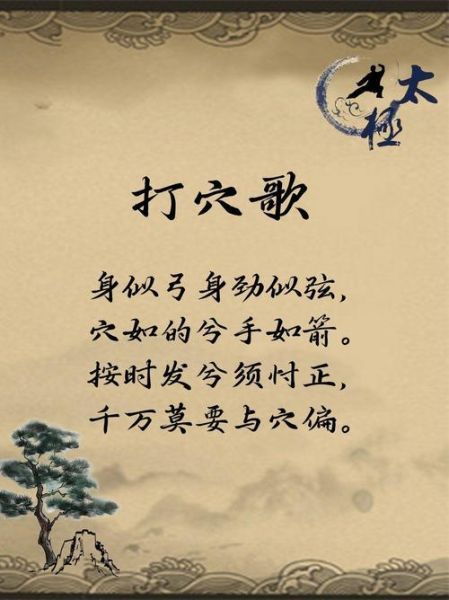 太極
打穴歌
身似弓身劲似弦，
穴如的兮手如箭。
按时发兮须忖正，
千万莫要与穴偏。